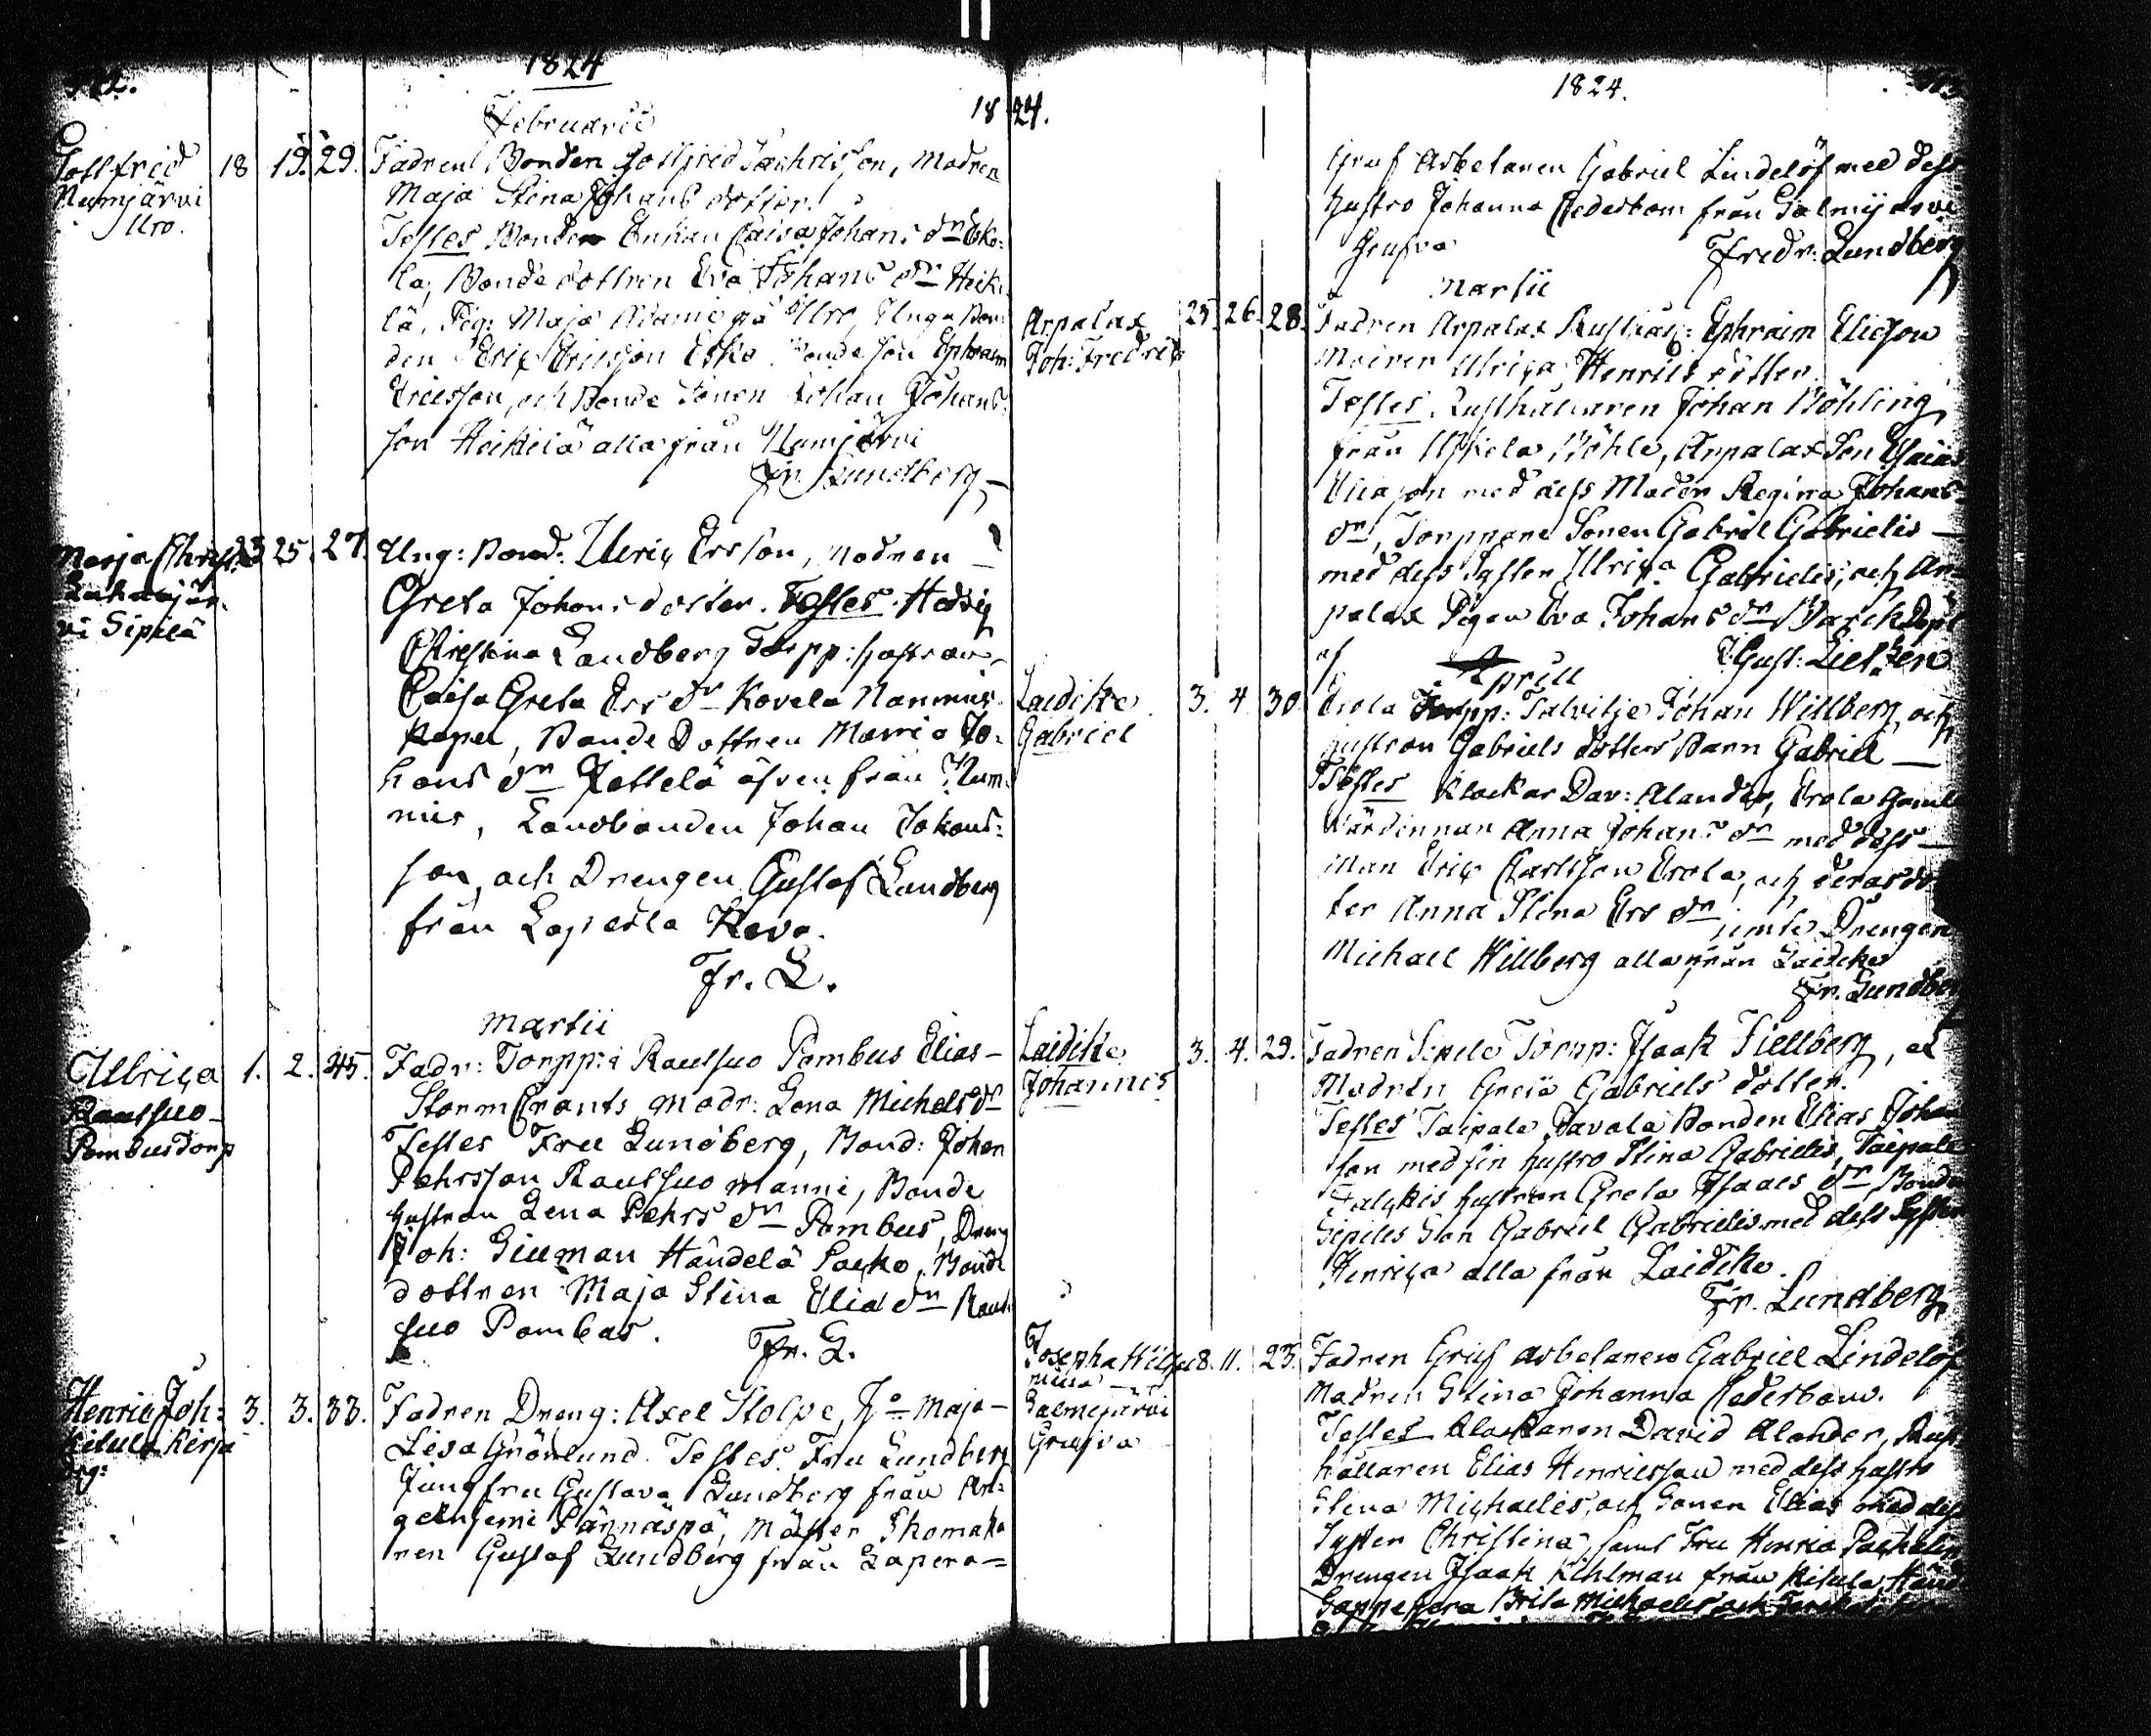 1824
Februarii
Gottfrid 18 19. 29. Fadren Bonden Gottfrid Zachrisson, Modren
Numjärvi Maja Stina Johans dotter.
Uro. Testes Bonden Enkan Caisa Johans dr Esko-
la, Bonde dottren Eva Johans dr Heiki-
lä, Pig: Maja på Uro, Unga Bon-
den Eric Ericsson Esko Bonde son Ephraim
Ericsson, och Bonde Sonen Johan Johans-
son Heikilä alla från Numjärvi
Fr. Lundberg
Maja Christ: 23 25. 27. Ung: Bond: Ulric Ersson, Modren
Greta Johans dotter. Testes Hedvig
vi Sipilä Christina Landberg Torpp: hustrun
Caisa Greta Ers dr Kovela Nanmis
Bonde Dottren Maria Jo-
hans dr äfven från Num-
mis, Landbonden Johan Johans-
son, och Drengen Gustaf Lundberg
från Laperla Kevo.
Fr. L.
Martii
Ulbrica 1. 2. 45. Fadr: Torpp: i Rautsuo Pombus Elias
Rautsuo Storm Crants, Modr: Lena Michels dr
Pombus Torp Testes Fru Lundberg, Bond: Johan
Pehrsson Rautsuo Manni, Bonde
hustrun Lena Pehrs dr Pombus, Dreng
Joh: Gillman Händelä Pacho, Bonde
dottren Maja Stina Elias dr Raut
suo Pombus.
Fr. L.
Henric Joh: 3. 3. 33. Fadren Dreng: Axel Stolpe, Ho Maja
Kitula Kirja Lisa Grönlund. Testes. Fru Lundberg
Jungfru Gustava Lundberg från An-
gelniemi Pännäspä, Mäster Skomaka
ren Gustaf Lundberg från Lapera-
1824.
1824.
Gruf Arbetaren Gabriel Lindelöf med dess
hustro Johanna Cederbom från Salmijärvi
Grufva Fredr: Lundberg
Martii
Arpalax 25. 26. 28. Fadren Arpalax Rusthål: Ephraim Eliasson
Joh: Fredric Modren Ulrica Henrics dotter
Testes. Rusthållaren Johan Böhling
från Uskela Böhle, Arpalax Son Esaias
Eliason med dess Moder Regina Johans
dr, Torppare Sonen Gabriel Gabrielis
med dess Syster Ulrica Gabrielis, och Ar-
palax Pigan Eva Johans dr
af Gust:
April
Laidike 3. 4. 30. Erola Torpp: Talvitje Johan Willberg, och
Gabriel hustron Gabriels dotters Barn Gabriel
Testes Klockar Dav: Alander, Erola gamla
Värdinnan Anna Johans dr med dess
man Eric Carlsson Erola, och deras dot
ter Anna Stina Ers dr, jemte Drengen
Michael Willberg alla från Laidike
Fr. Lundberg
Laidike 3. 4. 29. Fadren Sipilä Torpp: Isaak Fiellberg, och
Johannes Modren Greta Gabriels dotter.
Testes Taipale Pavola Bonden Elias Johan
son med sin hustro Stina Gabrielis, Taipale
hustron Greta Isaacs dr, Bonde
Sipiles Son Gabriel Gabrielis med dess Syster
Henrica alla från Laidike.
Fr. Lundberg
Josepha Wilhel 8. 11. 23. Fadren Gruf Arbetaren Gabriel Lindelöf
mina Modren Stina Johanna Cederbom.
Salmijärvi Testes Klockaren David Alander, Rust
Grufva hållaren Elias Henricsson med dess hustro
Stina Michaelis, och Sonen Elias med dess
Syster Christina, samt Fru Henrica
Drengen Isaak Kihlman från Kitula
Brita Michaelis och